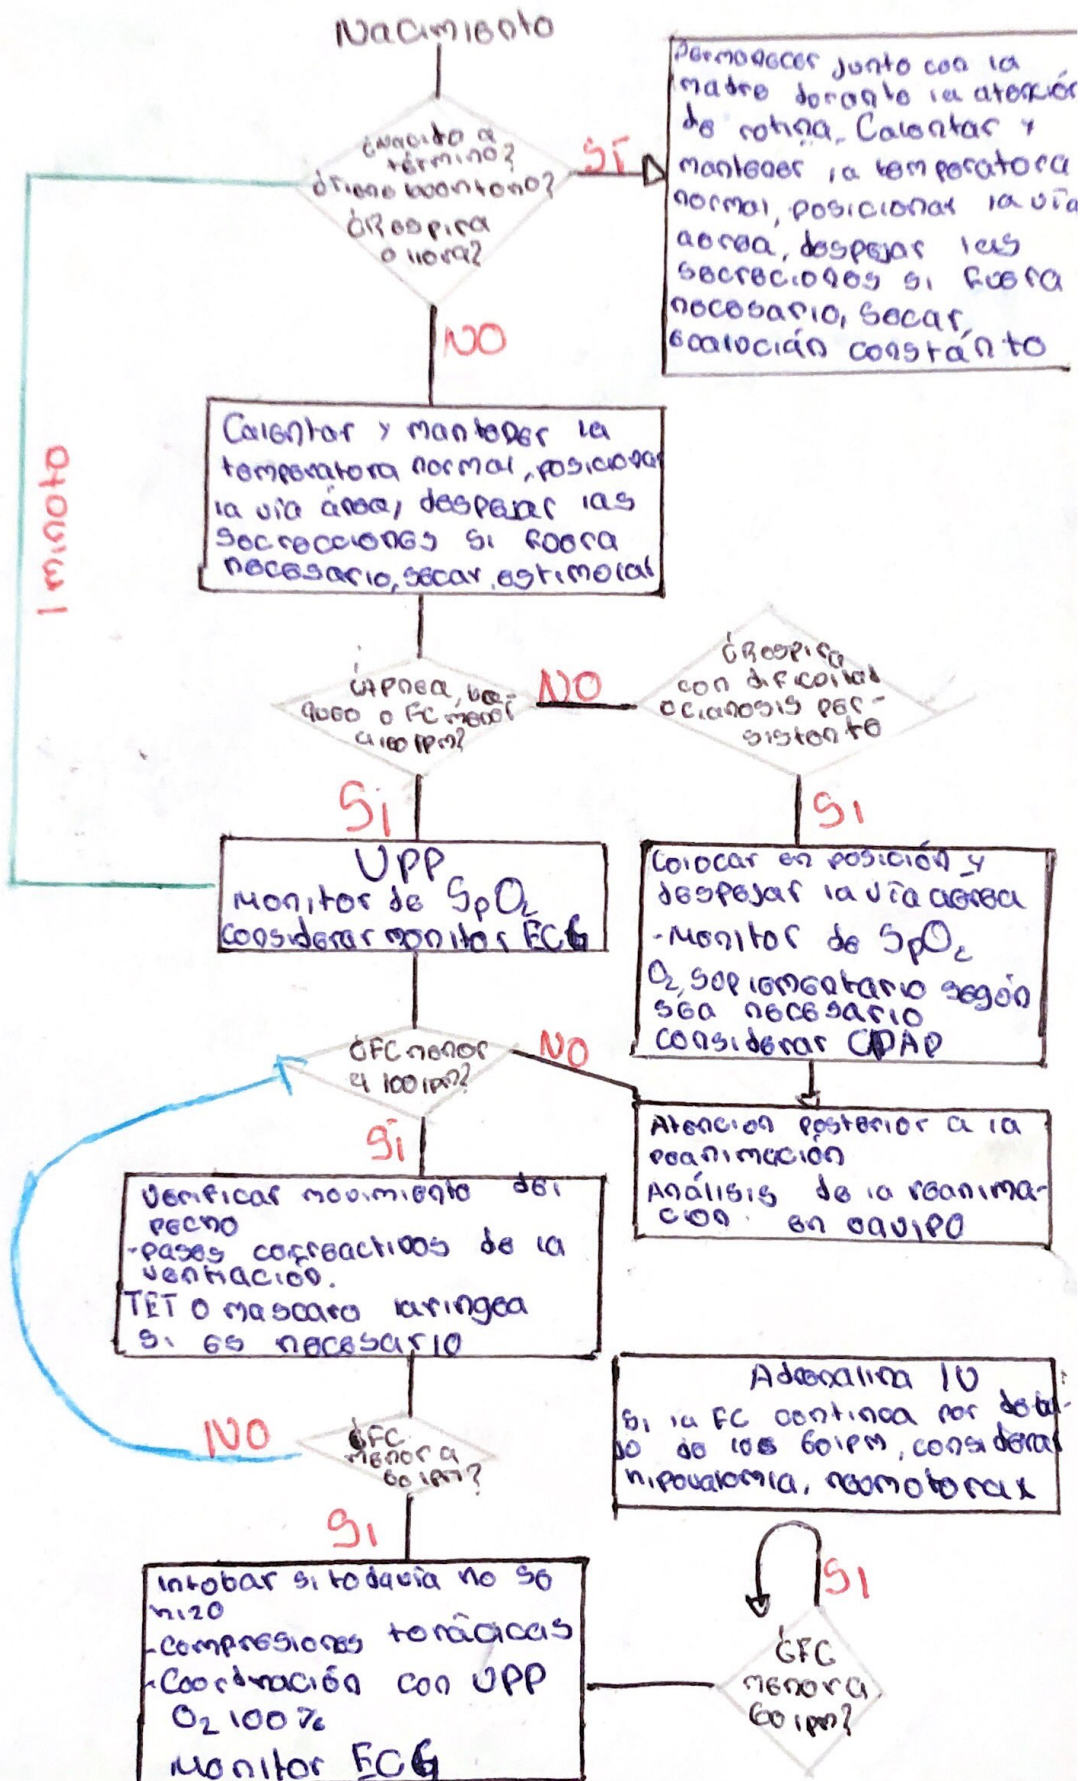 Nacimiento
¿Nacido a
término?
¿Tiene buen tono?
¿Respira
o llora?
SÍ
Permanecer junto con la
madre durante la atención
de rutina. Calentar y
mantener la temperatura
normal, posicionar la vía
aerea, despejar las
secreciones si fuera
necesario, secar,
evalución constánte
NO
1 minuto
Calentar y mantener la
temperatura normal, posicionar
la vía área, despejar las
secrecciones si fuera
necesario, secar, estimolar
¿Apnea, boqueo o FC menor
a 100 lpm?
NO
¿Respira
con dificultad
o cianosis per-
sistente
Si
SI
VPP
Monitor de SpO2
considerar monitor ECG
Colocar en posición y
despejar la vía aerea
-Monitor de SpO2
O2 suplementario según
sea necesario
considerar CPAP
¿FC menor
a 100 lpm?
NO
Sí
Atencion posterior a la
reanimación
Análisis de la reanima-
cion. en equipo
Verificar movimiento del
pecho
-pasos correactivos de la
ventilación.
TET o mascara laringea
si es necesario
NO
¿FC
menor a
60 lpm?
SI
Adrenalina IV
si la FC continua por debaj-
jo de los 60 lpm, considerar
hipovolemia, neomotorax
Intubar si todavía no se
hizo
-compresiones torácicas
-Coordinación con VPP
O2 100%
Monitor ECG
SI
¿FC
menor a
60 lpm?